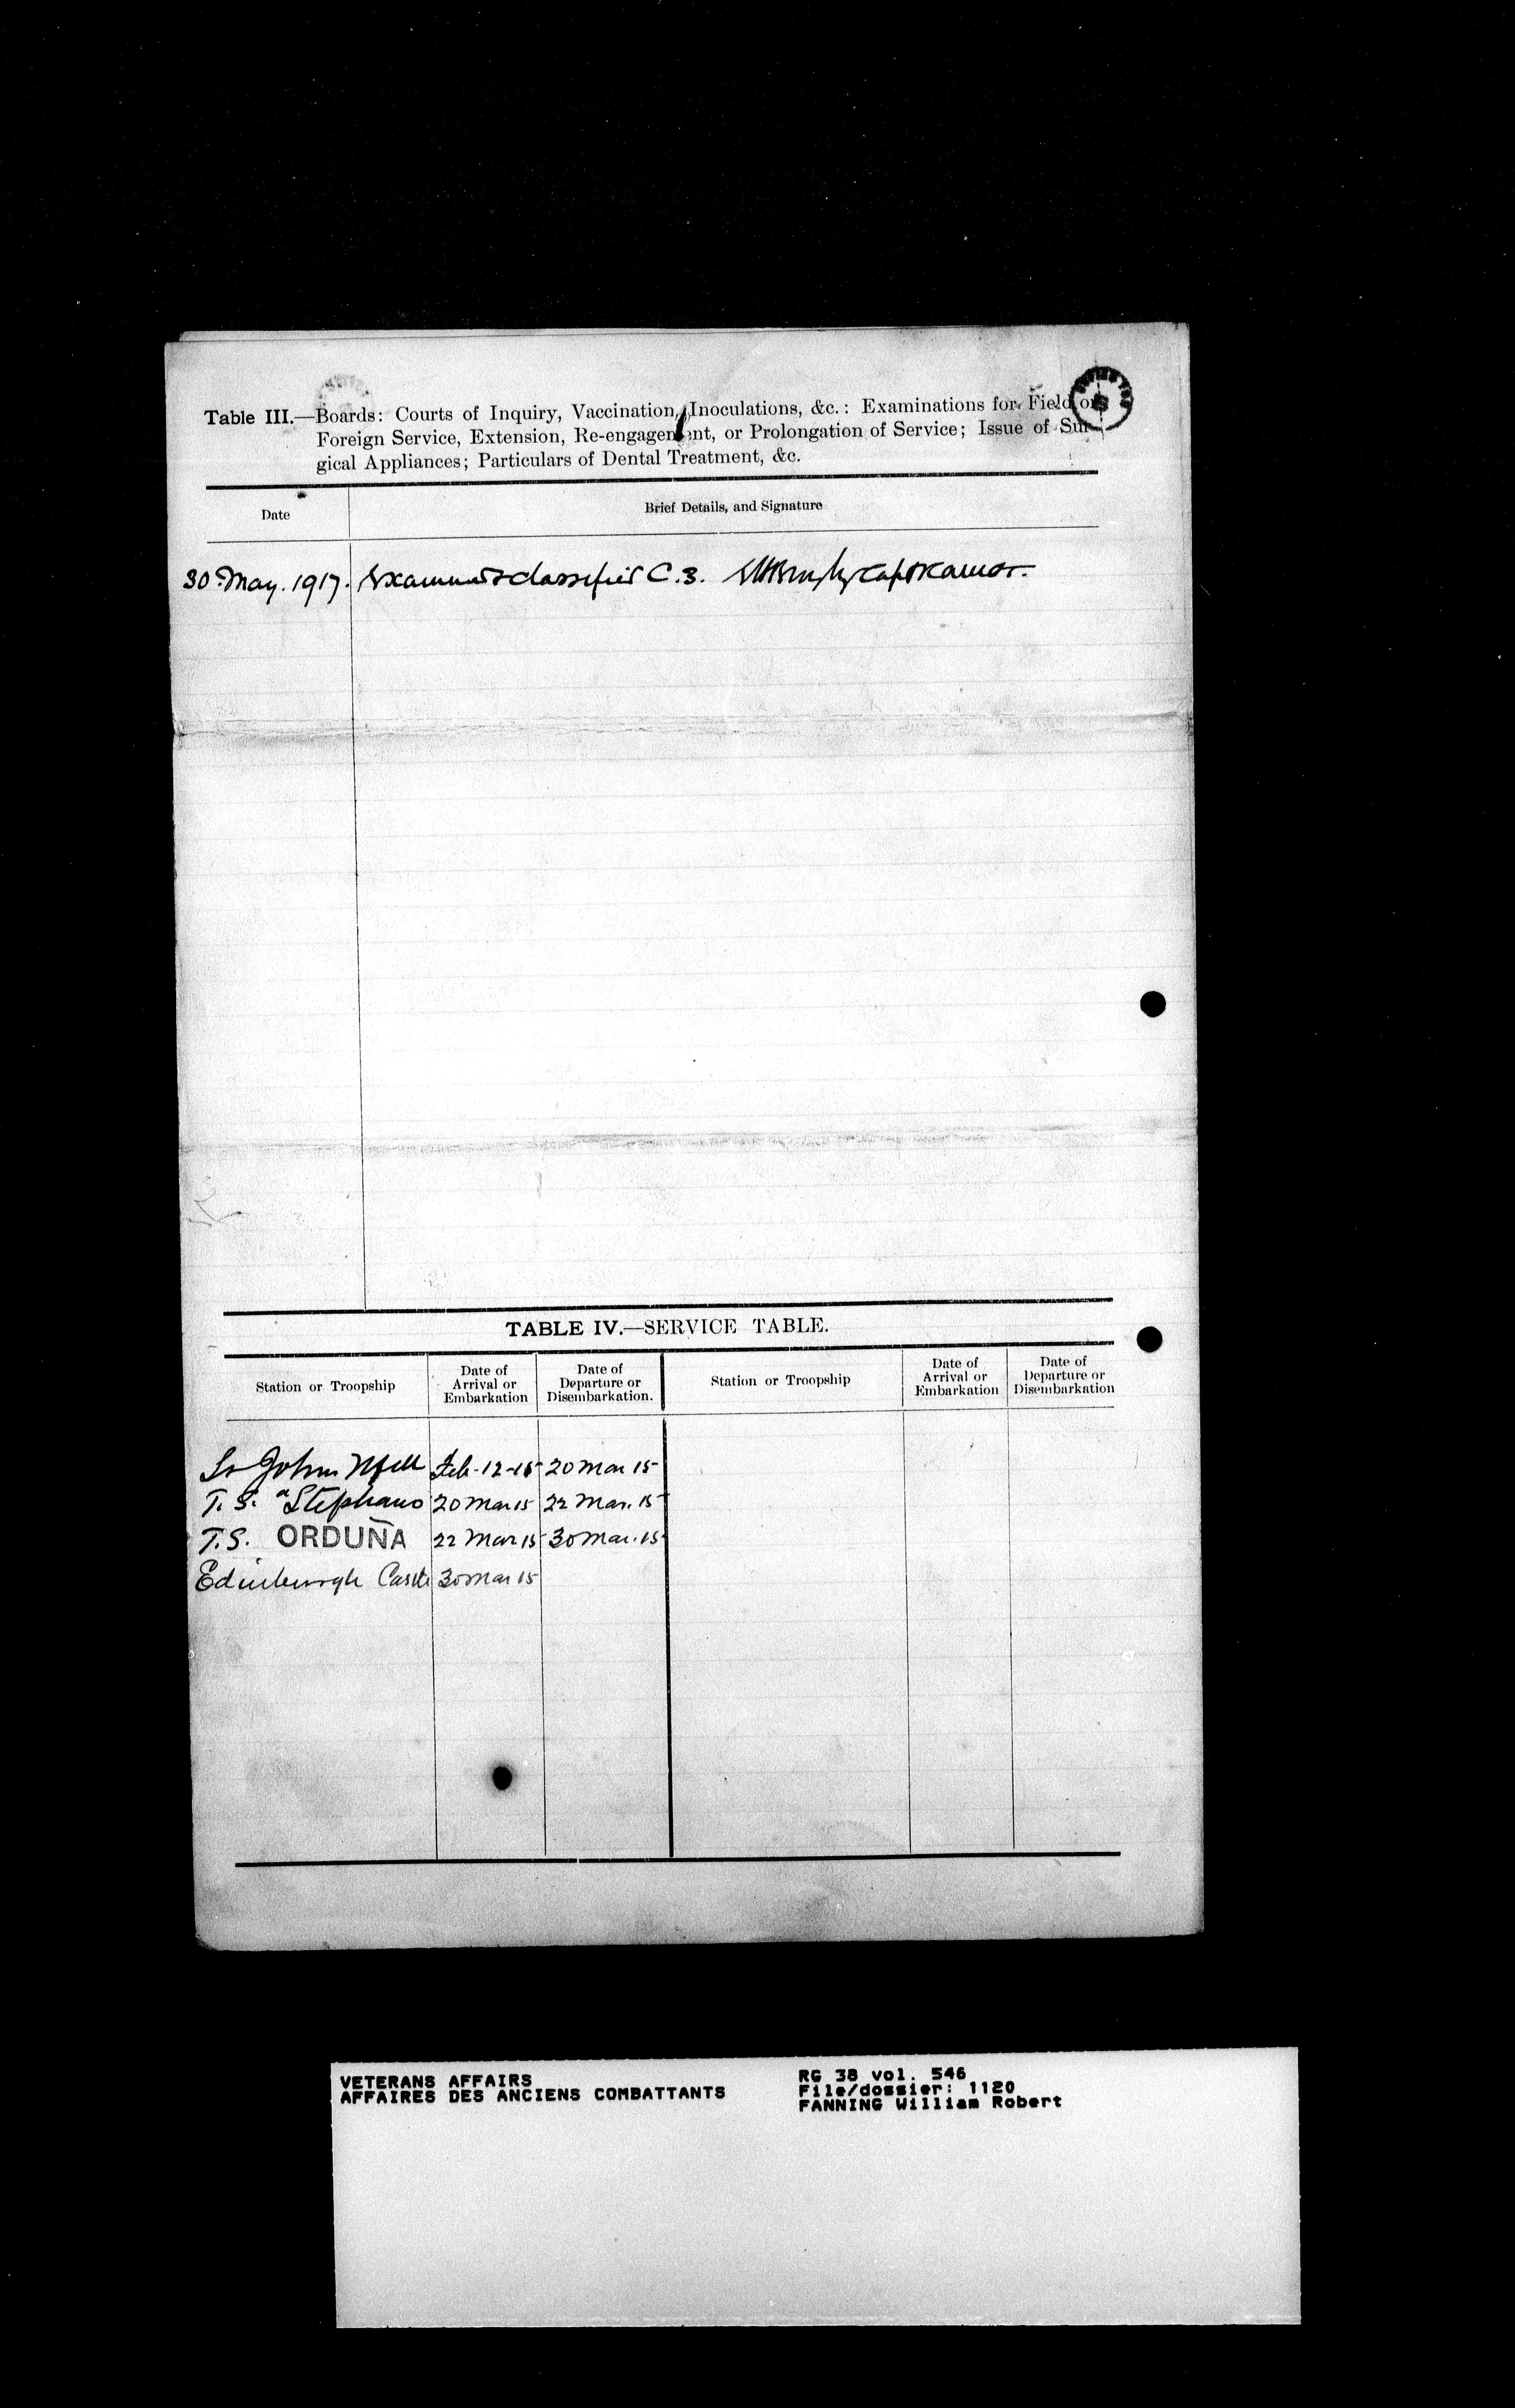 Table III.—Boards: Courts of Inquiry, Vaccination, Inoculations, &c.: Examinations for Field or
Foreign Service, Extension, Re-engagement, or Prolongation of Service; Issue of Sur-
gical Appliances; Particulars of Dental Treatment, &c.
Date
Brief Details, and Signature
30 May. 1917. Examined & classified C.3.
TABLE IV.—SERVICE TABLE.
Station or Troopship
Date of
Arrival or
Embarkation
Date of
Departure or
Disembarkation.
Station or Troopship
Date of
Arrival or
Embarkation
Date of
Departure or
Disembarkation
St Johns Nfld Feb-12-15 20 Mar 15
T.S. Stephano 20 Mar 15 22 Mar. 15
T.S. ORDUÑA 22 Mar 15 30 Mar. 15
Edinburgh Castle 30 Mar 15
VETERANS AFFAIRS
AFFAIRES DES ANCIENS COMBATTANTS
RG 38 vol. 546
File/dossier: 1120
FANNING William Robert